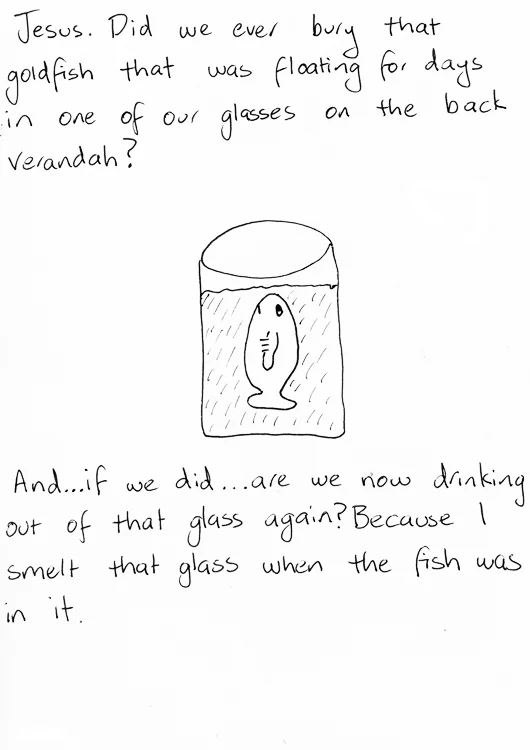 Jesus. Did we ever bury that
goldfish that was floating for days
in one of our glasses on the back
verandah?
And...if we did...are we now drinking
out of that glass again? Because I
smelt that glass when the fish was
in it.